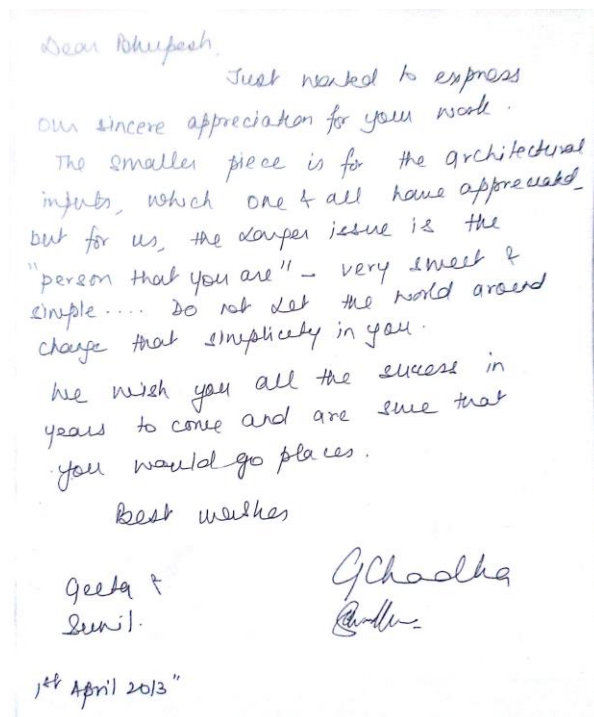 Dear Bhupesh,
Just wanted to express
our sincere appreciation for your work.
The smaller piece is for the architectural
inputs, which one & all have appreciated,
but for us, the larger issue is the
"person that you are" - very sweet &
simple .... Do not let the world around
change that simplicity in you.
We wish you all the success in
years to come and are sure that
you would go places.
Best wishes
Geeta &
Sunil.
GChadha
1st April 2013"